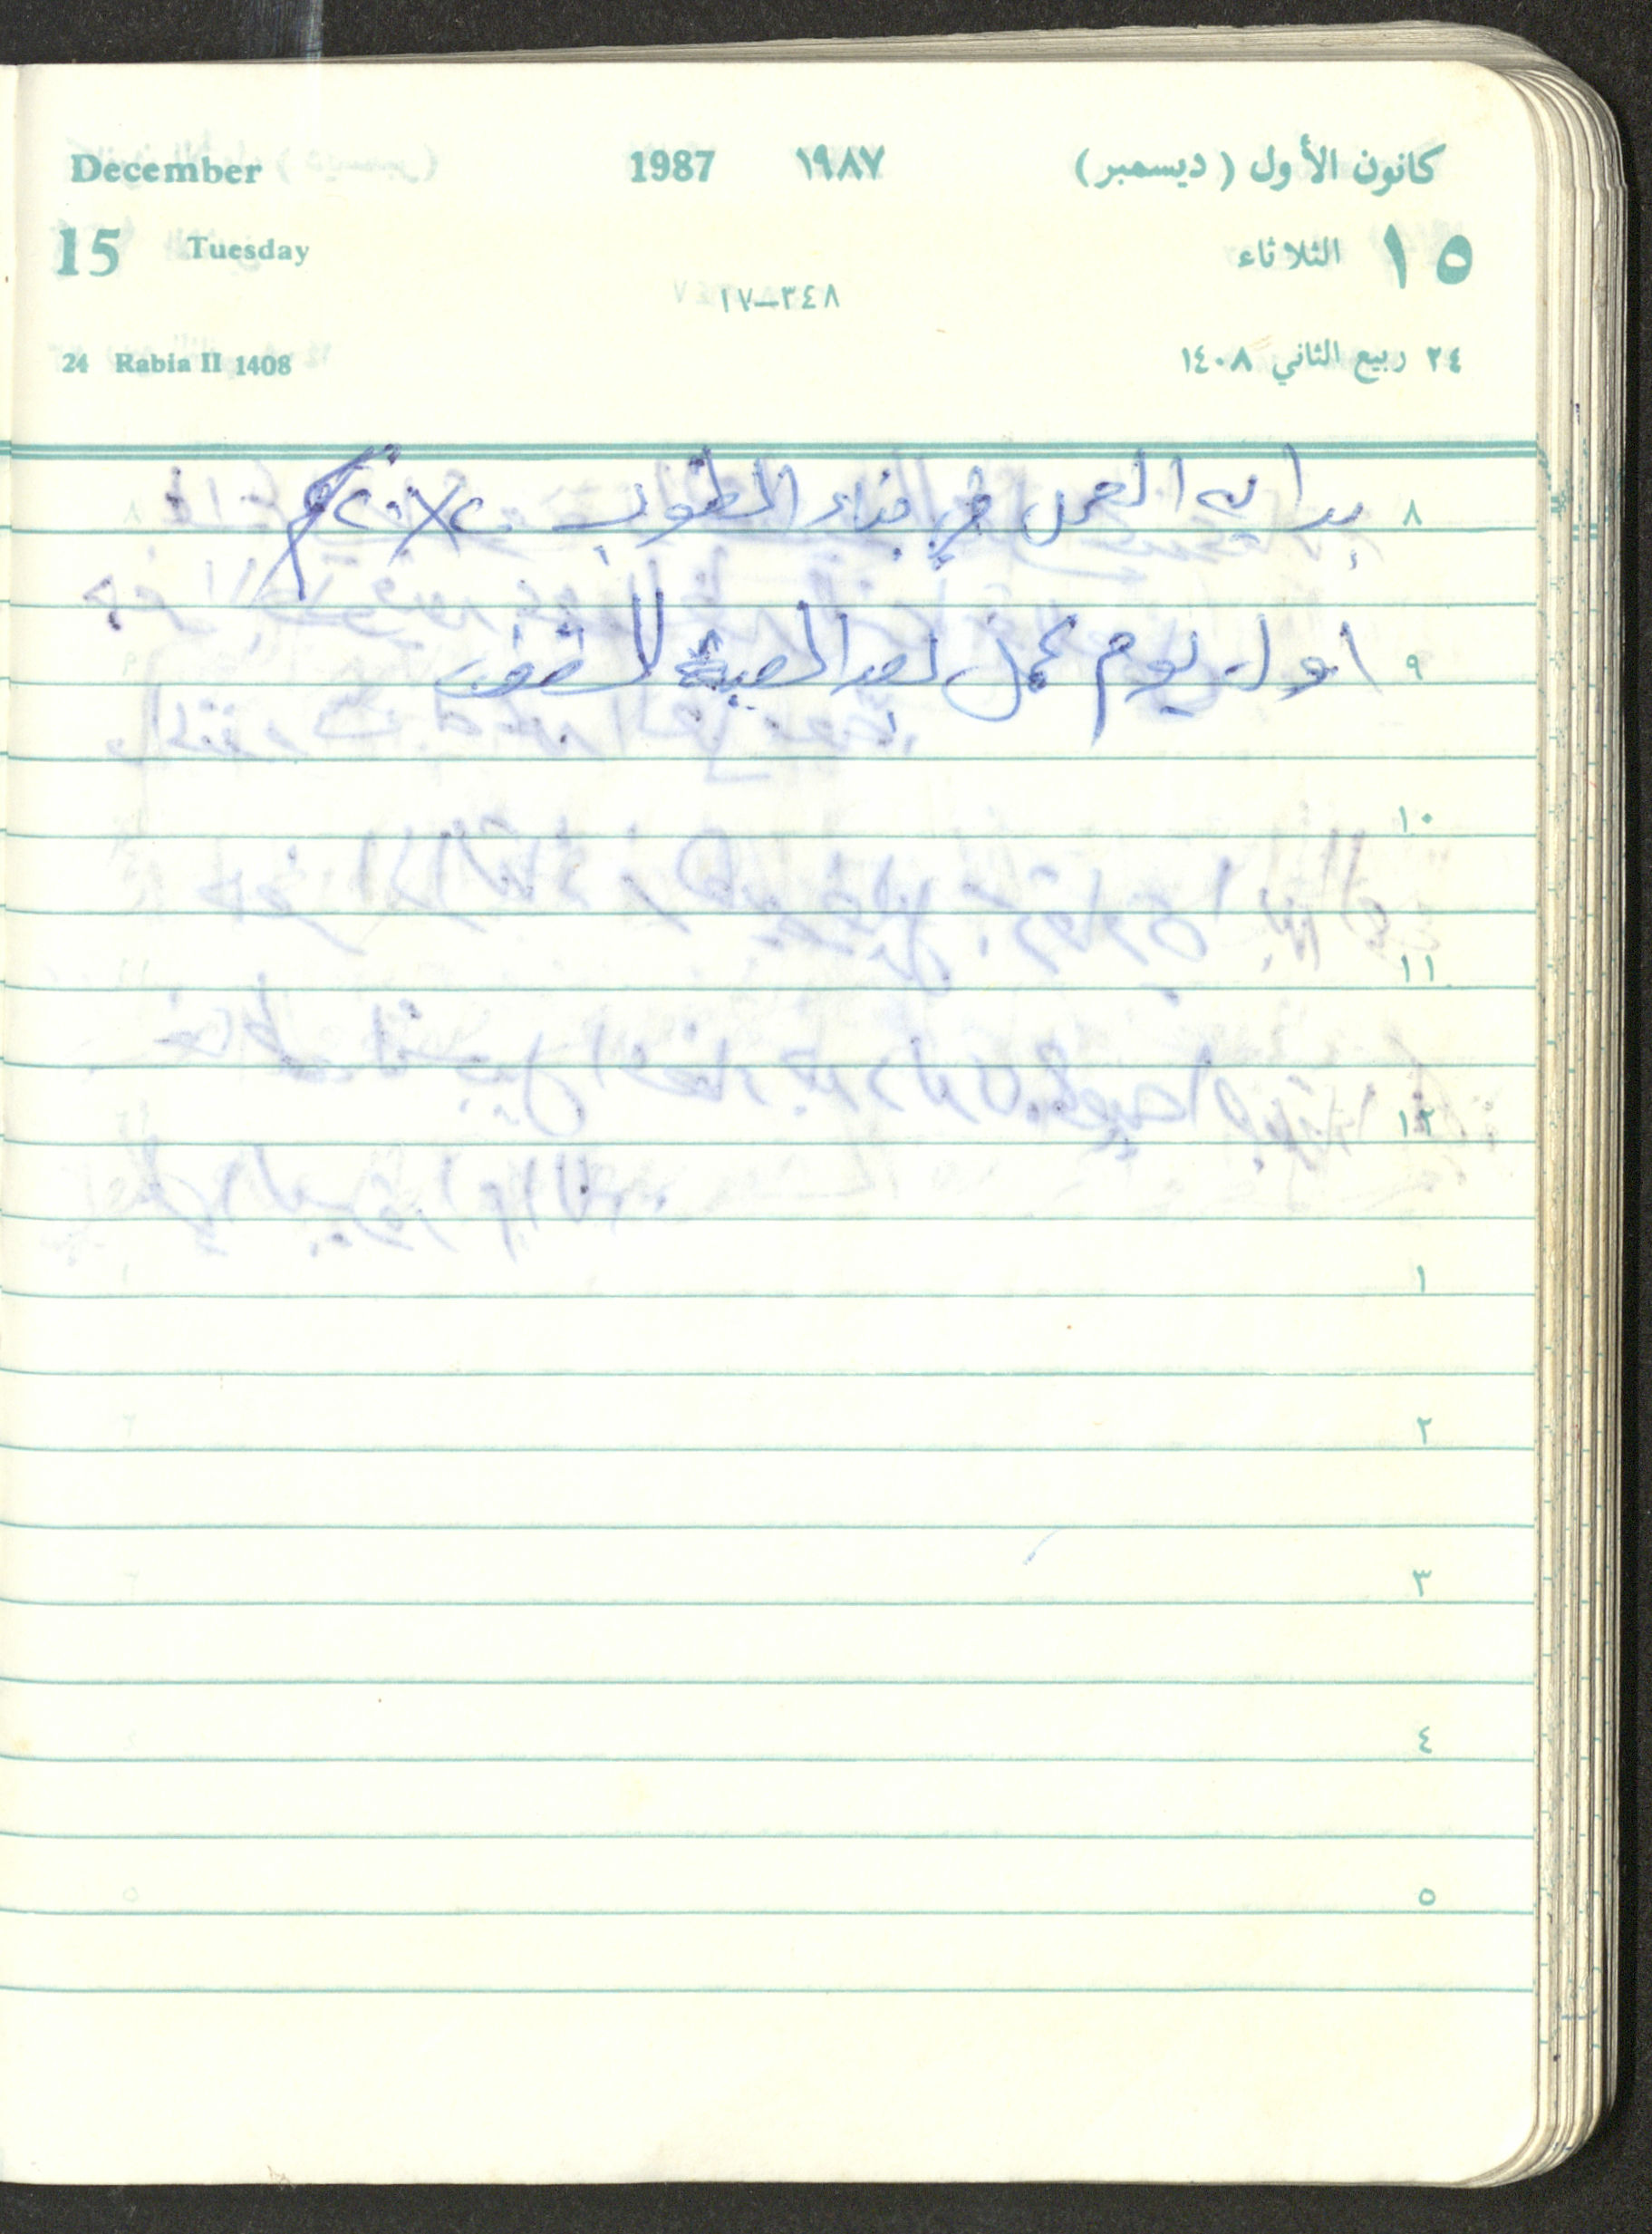 December 1987 ١٩٨٧ كانون الأول ( ديسمبر )
15 Tuesday الثلاثاء ١٥
٣٤٨-١٧
24 Rabia II 1408 ٢٤ ربيع الثاني ١٤٠٨
٨ بدايه العمل في بناء الطوب ٢٠×٢٠
٩ اول يوم عمل بعد الصبة للسقف
١٠
١١
١٢
١
٢
٣
٤
٥